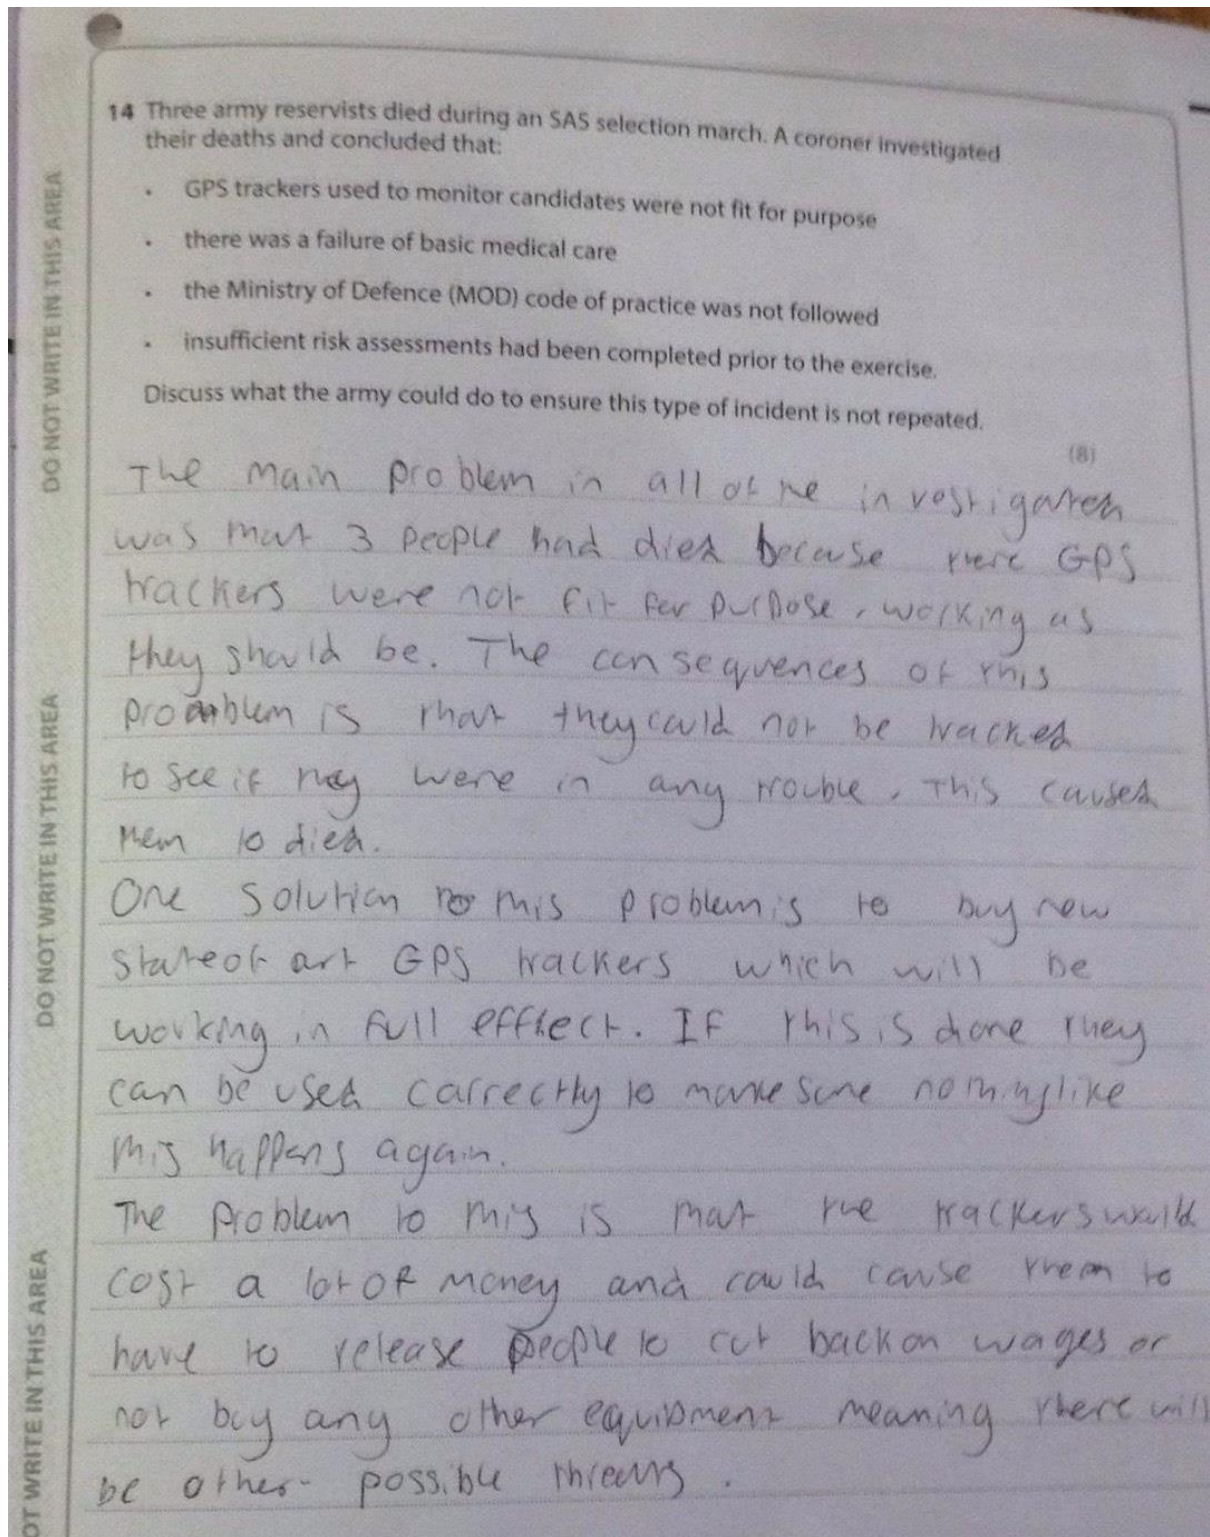 14 Three army reservists died during an SAS selection march. A coroner investigated
their deaths and concluded that:
• GPS trackers used to monitor candidates were not fit for purpose
• there was a failure of basic medical care
• the Ministry of Defence (MOD) code of practice was not followed
• insufficient risk assessments had been completed prior to the exercise.
Discuss what the army could do to ensure this type of incident is not repeated.
(8)
The main problem in all of the investigated
was that 3 people had died because there GPS
trackers were not fit for purpose, working as
they should be. The consequences of this
problem is that they could not be tracked
to see if they were in any trouble. This caused
them to died.
One solution to this problem is to buy new
state of art GPS trackers which will be
working in full efffect. If this is done they
can be used correctly to make sure nothing like
this happens again.
The problem to this is that the trackers would
cost a lot of money and could cause them to
have to release people to cut back on wages or
not buy any other equipment meaning there will
be other possible threats.
DO NOT WRITE IN THIS AREA
DO NOT WRITE IN THIS AREA
OT WRITE IN THIS AREA